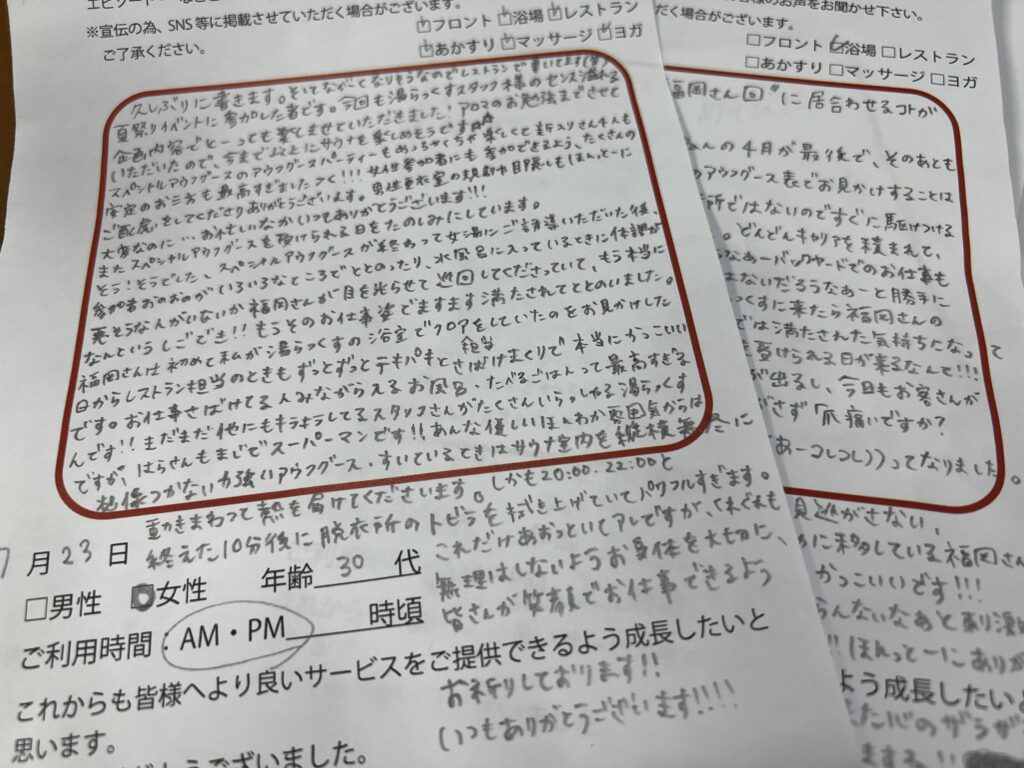 ※宣伝の為、SNS等に掲載させていただく場合がございます。
ご了承ください。
□フロント □浴場 □レストラン
□あかすり □マッサージ □ヨガ
久しぶりに書きます。そしてながーくなりそうなのでレストランで書いてます(笑)
夏祭りイベントに参加した者です。今回も湯らっくすスタッフ様のセンス溢れる
企画内容でとーっても楽しませていただきました！アロマのお勉強までさせて
いただいたので、今まで以上にサウナを楽しめそうです
スペシャルアウフグースのアウフグースパーティーもめっちゃくちゃ楽しくて新入りさん4人も
安定のお三方も最高すぎましたっ!!! 女性参加者にも参加できるよう、たくさんの
ご配慮をしてくださりありがとうございます。男性更衣室の 目隠しもほんとーに
大変なのに… いつもありがとうございます!!!
またスペシャルアウフグースを受けられる日をたのしみにしています。
そう！そうでした、スペシャルアウフグースが終わって女湯にご誘導いただいた後、
参加者おのおのがいろいろなところでととのったり、水風呂に入っているときに体調が
悪そうな人がいないか福岡さんが目を光らせて巡回してくださっていて、もう本当に
なんというしごでき!! もうそのお仕事姿でますます満たされてととのいました。
福岡さんは初めて私が湯らっくすの浴室でフロアをしていたのをお見かけした
日からレストラン担当のときもずっとずっとテキパキとさばけまくりで本当にかっこいい
担当
です。お仕事さばけてる人みながらえるお風呂、たべるごはんって最高すぎる
んです!! まだまだ他にもキラキラしてるスタッフさんがたくさんいらっしゃる湯らっくす
ですが、はらさんもまじでスーパーマンです!! あんな優しいほんわか雰囲気からは
想像つかない力強いアウフグース、すいているときはサウナ室内を縦横無尽に
動きまわって熱を届けてくださいます。しかも20:00、22:00と
終えた10分後に脱衣所のトビラを拭き上げていてパワフルすぎます。
これだけあおっといてアレですが、くれぐれも
無理はしないようお身体を大切に、
皆さんが笑顔でお仕事できるよう
お祈りしております!!
いつもありがとうございます!!!!
7月23日
□男性 □女性 年齢 30 代
ご利用時間：AM・PM 時頃
これからも皆様へより良いサービスをご提供できるよう成長したいと
思います。
ございました。
様のお声をお聞かせ下さい。
だく場合がございます。
□フロント □浴場 □レストラン
□あかすり □マッサージ □ヨガ
福岡さん回"に居合わせるコトが
なんの4月が最後で、そのあとも
アウフグース表でお見かけすることは
所ではないのですぐに駆けつける
。どんどんキャリアを積まれて、
なあーバックヤードでのお仕事も
まないだろうなあーと勝手に
っくすに来たら福岡さんの
では満たされた気持ちになって
を受けられる日が来るなんて!!!
が出るし、今日もお客さんが
がさず「爪痛いですか?
あーコレコレ))ってなりました。
見逃がさない、
に移している福岡さん
かっこいいです!!!
らんないなあと
ほんっとーにありが
よう成長したいと